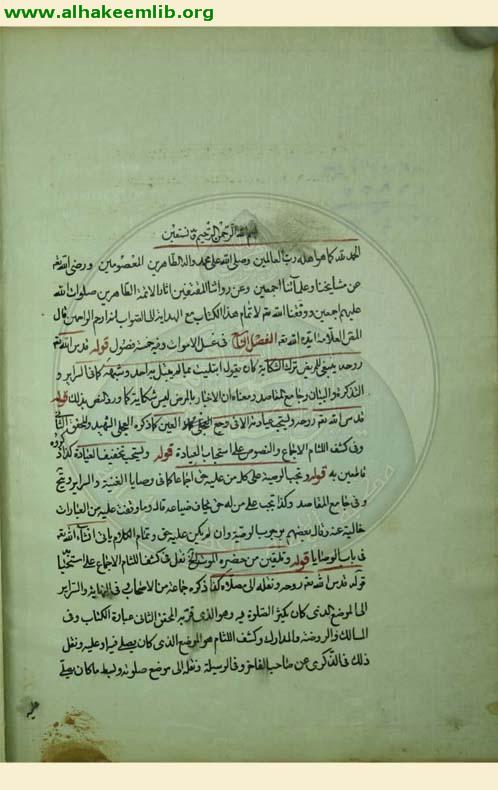 www.alhakeemlib.org
بسم الله الرحمن الرحيم وبه نستعين
الحمد لله كما هو اهله رب العالمين وصلى الله على محمد واله الطاهرين المعصومين ورضى الله تع
عن مشايخنا وعلمائنا اجمعين وعن رواتنا المقتفين اثار الائمة الطاهرين صلوات الله
عليهم اجمعين ووفقنا الله تع لاتمام هذا الكتاب مع الهداية الى الصواب انه ارحم الراحمين قال
العلامة ايده الله تع الفصل في غسل الاموات وفيه خمسة فصول قوله قدس الله تع
روحه ينبغى للمريض ترك الشكاية كان يقول ابتليت بما لم يبتل به احد وشبهه كما في السرائر و
التذكرة والبيان وجامع المقاصد ومعناه ان الاخبار بالمرض ليس شكاية كما ورد النص بذلك قوله
قدس الله تع روحه ويستحب عيادته الا في وجع العين كما ذكره الشهيد والمحقق الثاني
وفي كشف اللثام الاجماع والنصوص على استحباب العيادة قوله ويستحب تخفيف العيادة كذا ذكروه
قاطعين به قوله وتجب الوصية على كل من عليه حق اجماعا كما في وصايا الغنية والسرائر وتجب
وفي جامع المقاصد وكذا تجب على من له حق يخاف ضياعه قال وما وقفت عليه من العبارات
خالية عنه وقال بعضهم بوجوب الوصية وان لم يكن عليه حق وتمام الكلام ياتي انشاء الله تع
في باب الوصايا قوله وتلقين من حضره الموت نقل في كشف اللثام الاجماع على استحبابه
قوله قدس الله تع روحه ونقله الى مصلاه كذا ذكره جماعة من الاصحاب وفي النهاية والسرائر
الى الموضع الذى كان يكثر الصلوة فيه وهو الذى قرب به المحقق الثاني عبارة الكتاب وفي
المسالك والروضة والمدارك وكشف اللثام هو الموضع الذى كان يصلى فيه او عليه ونقل
ذلك في الذكرى عن صاحب الفاخر وفي الوسيلة ونقله الى موضع صلوته وبسط ما كان يصلى
عليه